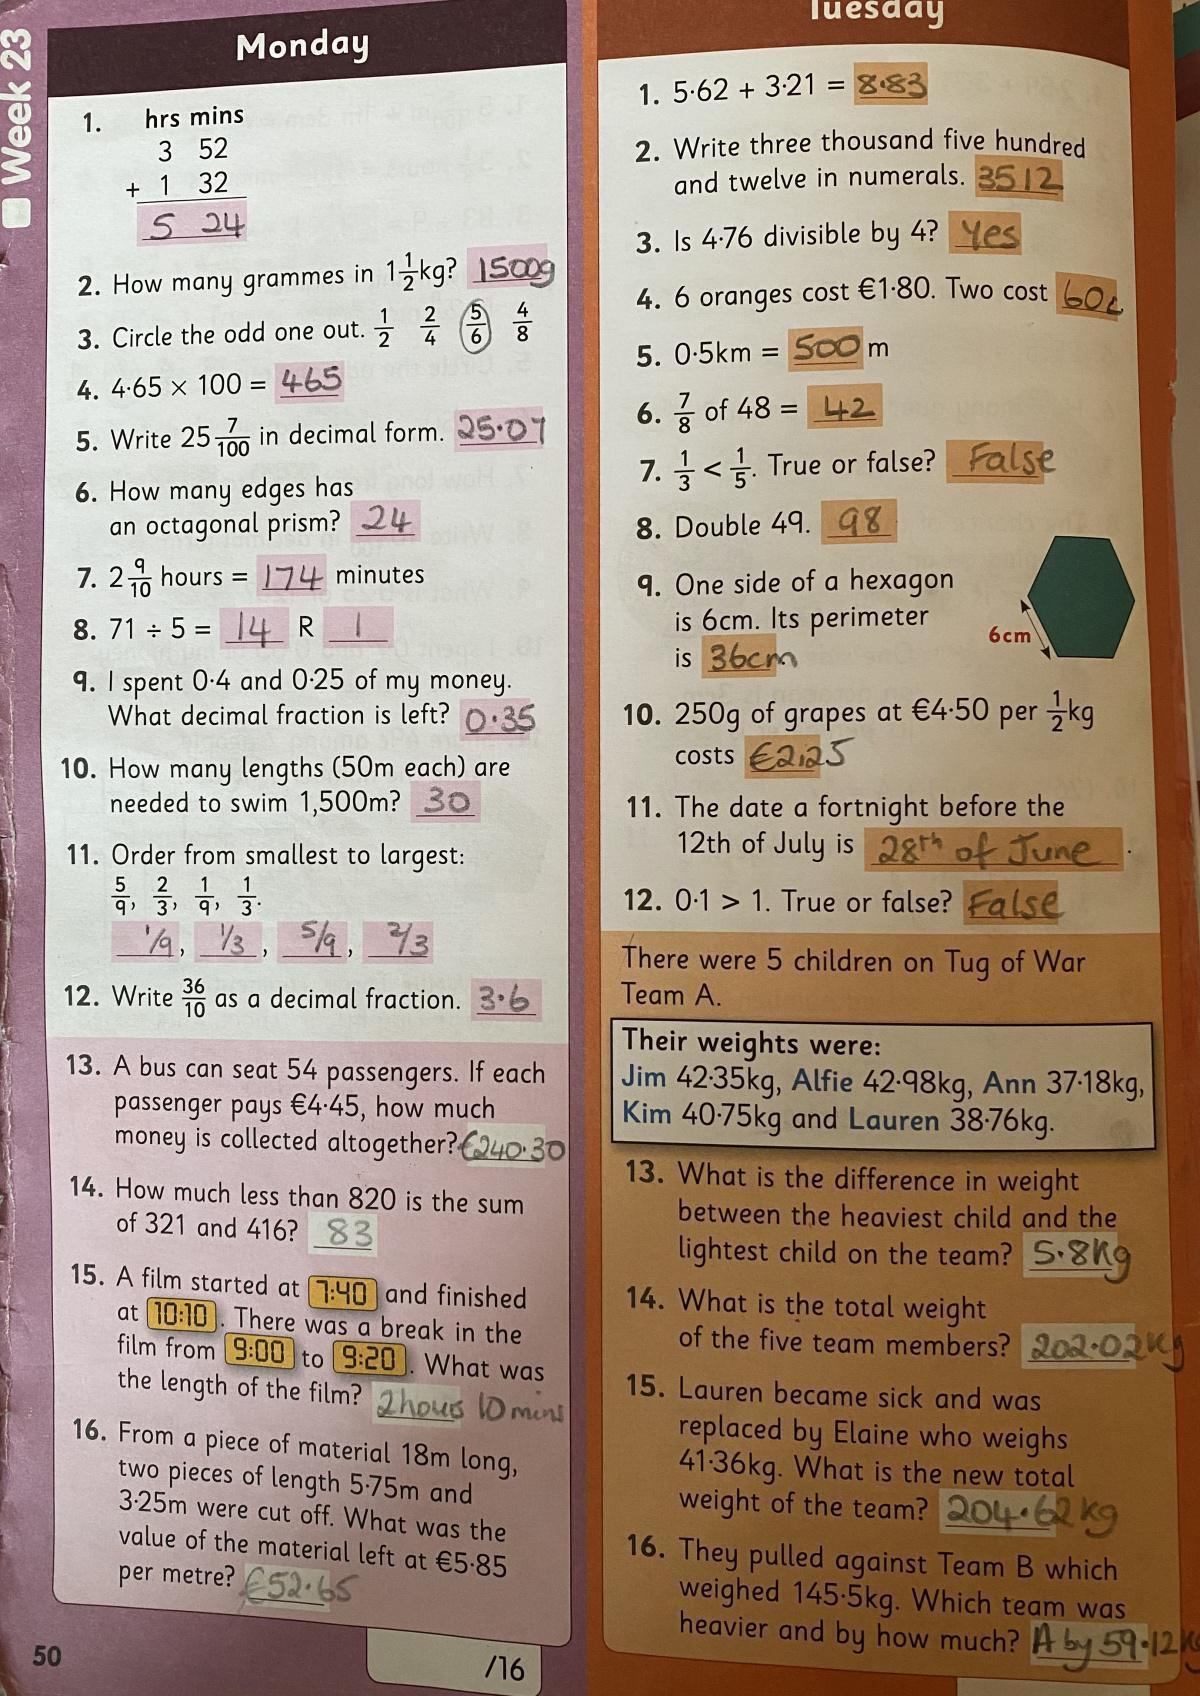 Week 23
Monday
1. hrs mins
3 52
+ 1 32
5 24
2. How many grammes in 1 1/2 kg? 1500g
3. Circle the odd one out. 1/2 2/4 5/6 4/8
4. 4·65 × 100 = 465
5. Write 25 7/100 in decimal form. 25·07
6. How many edges has
an octagonal prism? 24
7. 2 9/10 hours = 174 minutes
8. 71 ÷ 5 = 14 R 1
9. I spent 0·4 and 0·25 of my money.
What decimal fraction is left? 0·35
10. How many lengths (50m each) are
needed to swim 1,500m? 30
11. Order from smallest to largest:
5/9, 2/3, 1/9, 1/3.
1/9, 1/3, 5/9, 2/3
12. Write 36/10 as a decimal fraction. 3·6
13. A bus can seat 54 passengers. If each
passenger pays €4·45, how much
money is collected altogether? €240·30
14. How much less than 820 is the sum
of 321 and 416? 83
15. A film started at 7:40 and finished
at 10:10. There was a break in the
film from 9:00 to 9:20. What was
the length of the film? 2 hours 10 mins
16. From a piece of material 18m long,
two pieces of length 5·75m and
3·25m were cut off. What was the
value of the material left at €5·85
per metre? €52·65
50
/16
Tuesday
1. 5·62 + 3·21 = 8·83
2. Write three thousand five hundred
and twelve in numerals. 3512
3. Is 4·76 divisible by 4? Yes
4. 6 oranges cost €1·80. Two cost 60c
5. 0·5km = 500 m
6. 7/8 of 48 = 42
7. 1/3 < 1/5. True or false? False
8. Double 49. 98
9. One side of a hexagon
is 6cm. Its perimeter
is 36cm
6cm
10. 250g of grapes at €4·50 per 1/2 kg
costs €2,25
11. The date a fortnight before the
12th of July is 28th of June.
12. 0·1 > 1. True or false? False
There were 5 children on Tug of War
Team A.
Their weights were:
Jim 42·35kg, Alfie 42·98kg, Ann 37·18kg,
Kim 40·75kg and Lauren 38·76kg.
13. What is the difference in weight
between the heaviest child and the
lightest child on the team? 5·8kg
14. What is the total weight
of the five team members? 202·02kg
15. Lauren became sick and was
replaced by Elaine who weighs
41·36kg. What is the new total
weight of the team? 204·62kg
16. They pulled against Team B which
weighed 145·5kg. Which team was
heavier and by how much? A by 59·12kg